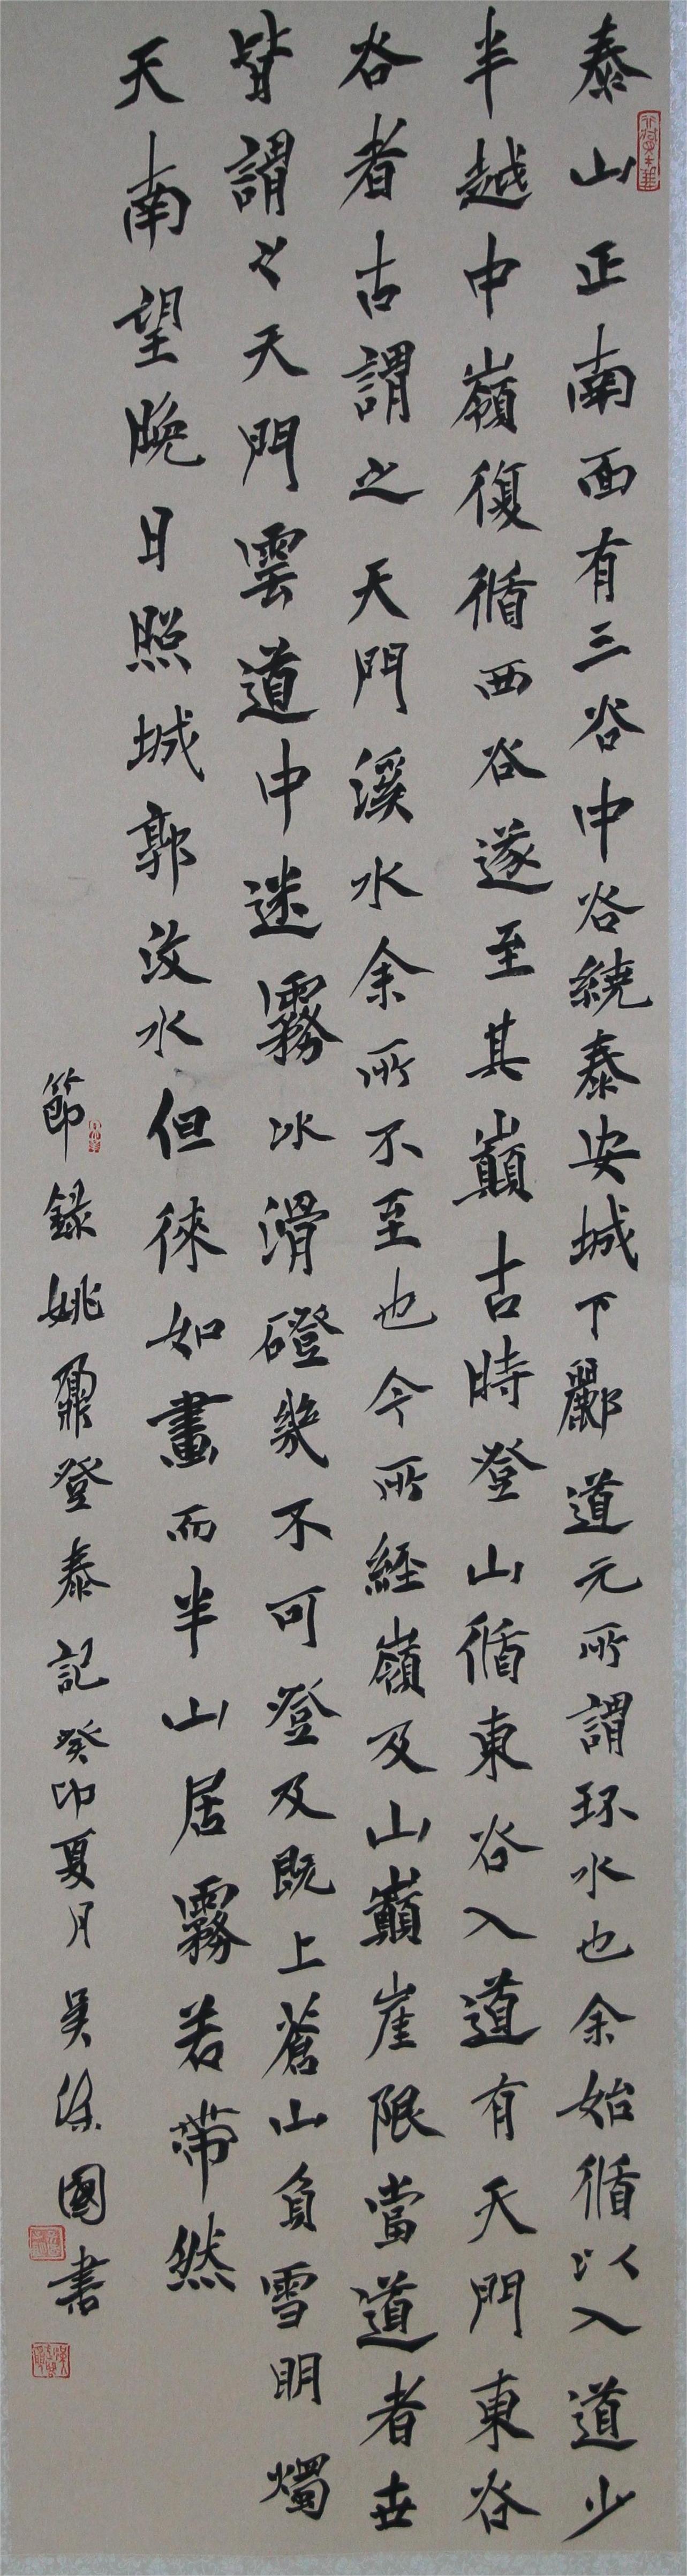 泰山正南面有三谷中谷繞泰安城下酈道元所謂环水也余始循以入道少
半越中嶺復循西谷遂至其巔古時登山循東谷入道有天門東谷
谷者古謂之天門溪水余所不至也今所經嶺及山巔崖限當道者世
皆謂之天門雲道中迷霧冰滑磴幾不可登及既上蒼山負雪明燭
天南望晚日照城郭汶水但徠如畫而半山居霧若帶然
節錄姚鼐登泰記癸卯夏月吳國書